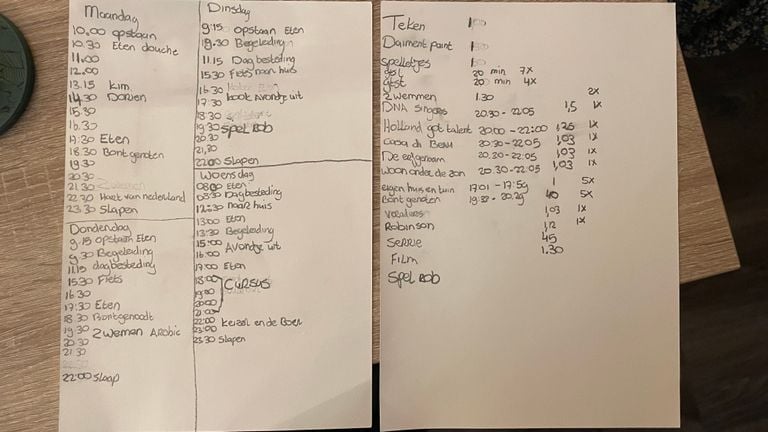 Maandag
10.00 opstaan
10.30 Eten douche
11.00
12.00
13.15 Kim
14.30 Dorien
15.30
16.30
17:30 Eten
18.30 Bontgenoten
19.30
20.30
21.30 Zwemen
22.30 Hart van nederland
23.30 Slapen
Dinsdag
9:15 opstaan Eten
9.30 Begeleiding
11.15 Dagbesteding
15.30 Fiets naar huis
16.30
17:30 kookt Avondje uit
18:30
19:30 Spel Rob
20.30
21,30
22:00 Slapen
Woensdag
08:00 Eten
08:30 Dagbesteding
12:30 naar huis
13:00 Eten
13:30 Begeleiding
15:00 Avondje uit
16:00
17:00 Eten
18:00 CURSUS
19:00
20:00
21:00
22:00 Keizer en de Boer
23:00
23:30 Slapen
Donderdag
9.15 opstaan Eten
9.30 Begeleiding
11.15 dagbesteding
15.30 Fiets
16.30
17:30 Eten
18.30 Bontgenoodt
19:30 Zwemen Arobic
20.30
21.30
22:00 Slaap
Teken
Daiment paint
Spelletjes
20 min 7x
20 min 4x
Zwemmen 1.30 2x
DNA singers 20.30-22.05 1,5 1x
Holland got talent 20:00-22:00 1x
Casa di Beau 20.30-22:05 1,03 1x
De eetgeraem 20.30-22:05 1,03 1x
Woon onder de zon 20.30-22.05 1,03 1x
eigen huis en tuin 17.01-17:59 1 5x
Bont genoten 5x
1,03 1x
Robinson 1,12 1x
SERRIE 45
FILM 1.30
Spel ROB